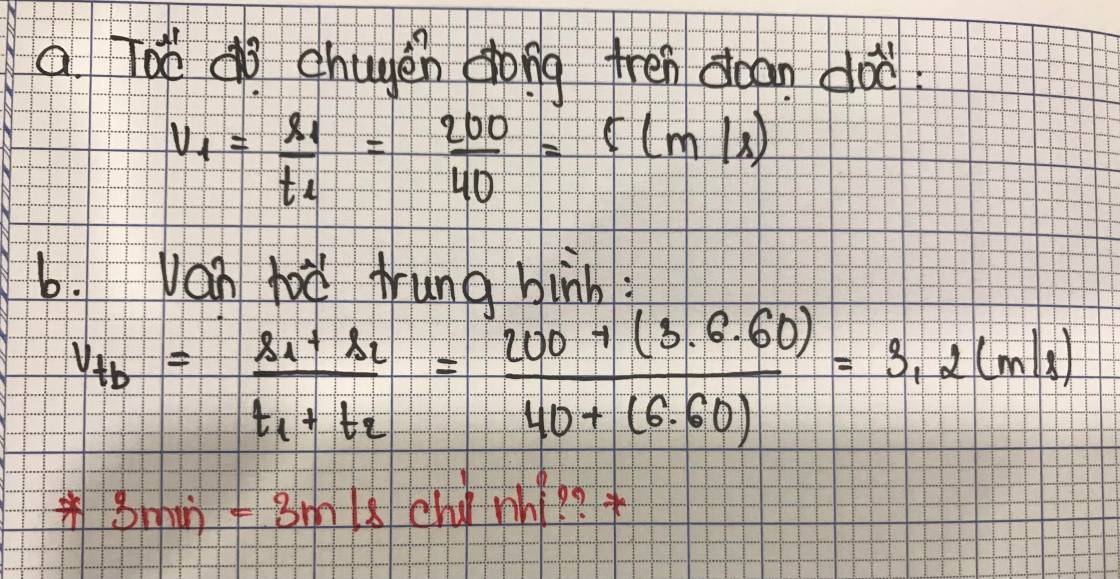 a. Tốc độ chuyển động trên đoạn dốc:
v₁ = s₁/t₁ = 200/40 = 5 (m/s)
b. Vận tốc trung bình:
vtb = (s₁ + s₂)/(t₁ + t₂) = (200 + (3.6.60))/(40 + (6.60)) = 3,2 (m/s)
* 3min = 3m/s chứ nhỉ?? *